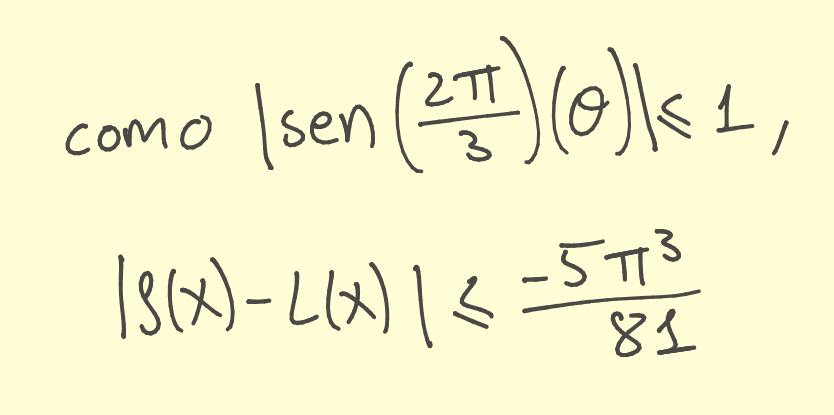 como |sen(2π/3)(θ)| ⩽ 1,
|f(x)-L(x)| ⩽ -5π³/81